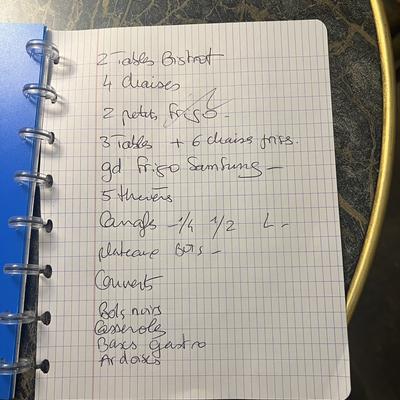 2 Tables Bistrot
4 chaises
2 petits frigo -
3 Tables + 6 chaises
gd frigo Samsung -
5 theières
Carafs - 1/4 1/2 L -
plateaux bois -
Couverts
Bols noirs
Casseroles
Bacs gastro
Ardoises